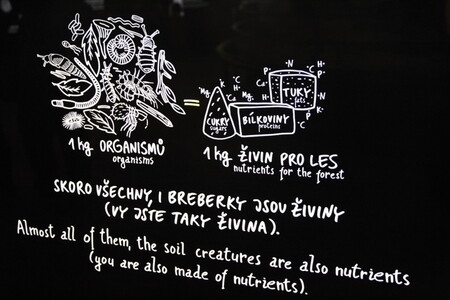 1 kg ORGANISMŮ
organisms
=
CUKRY
sugars
BÍLKOVINY
proteins
TUKY
fats
1 kg ŽIVIN PRO LES
nutrients for the forest
SKORO VŠECHNY, I BREBERKY JSOU ŽIVINY
(VY JSTE TAKY ŽIVINA).
Almost all of them, the soil creatures are also nutrients
(you are also made of nutrients).